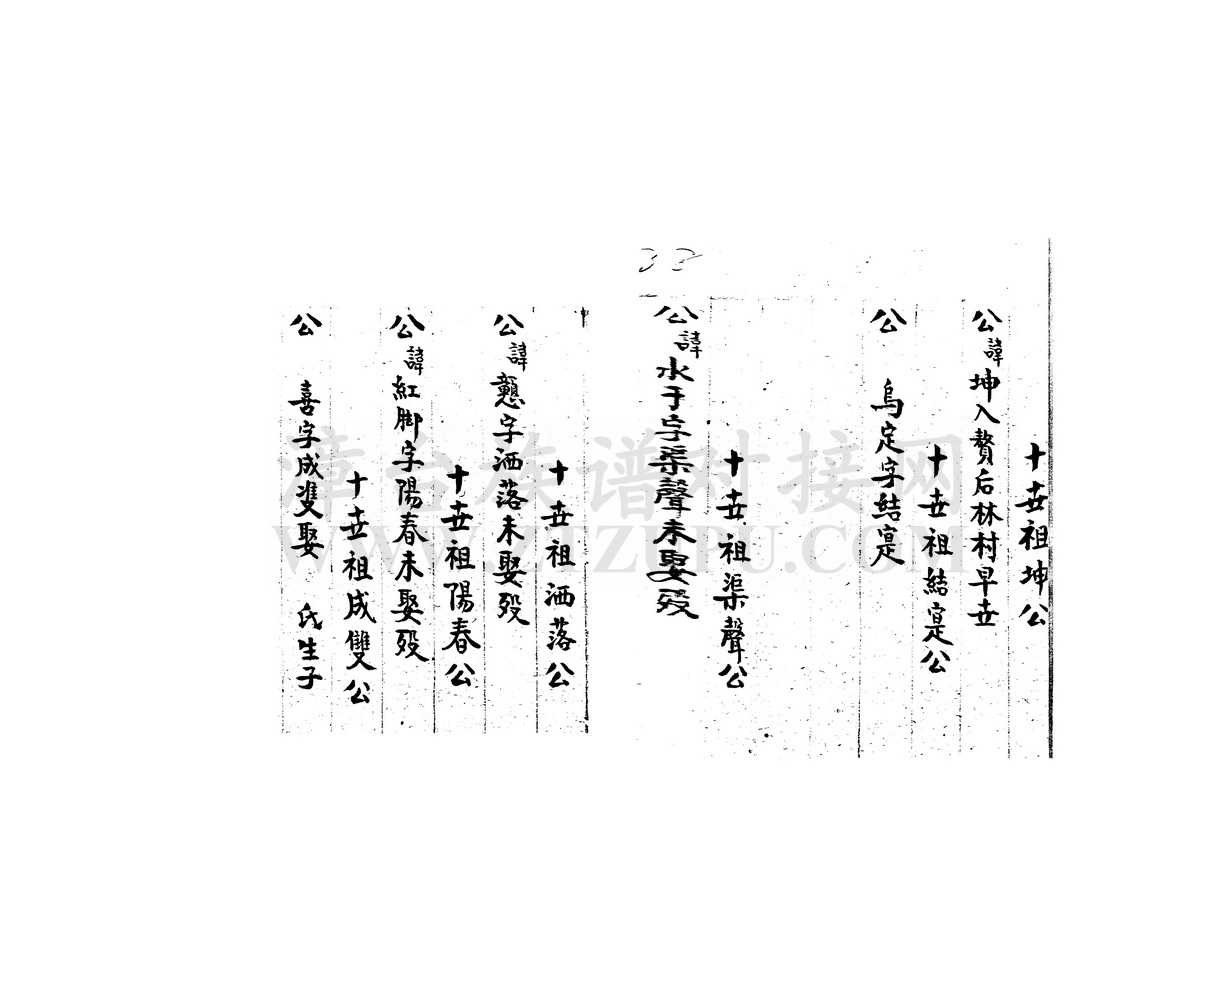 十世祖坤公
公諱坤入贅后林村早世
十世祖結寔公
公 烏定字結寔
十世祖渠聲公
公諱水于字渠聲未娶歿
33
十世祖洒落公
公諱戇字洒落未娶歿
十世祖陽春公
公諱紅脚字陽春未娶歿
十世祖成雙公
公 喜字成雙娶 氏生子
漳台族谱对接网
WWW.ZTZUPU.COM